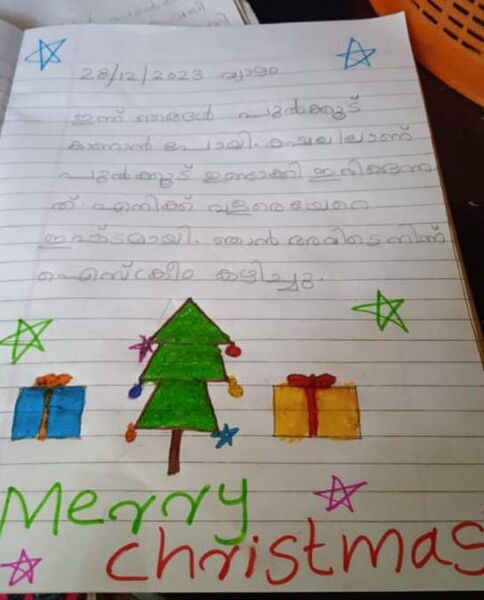 28/12/2023 വ്യാഴം
ഇന്ന് ഞങ്ങൾ പുൽക്കൂട്
കാണാൻ പോയി.
പുൽക്കൂട് ഉണ്ടാക്കി
ത്. എനിക്ക് വളരെയേറെ
ഇഷ്ടമായി. ഞാൻ അവിടെനിന്ന്
ഐസ്ക്രീം കഴിച്ചു.
Merry
christmas